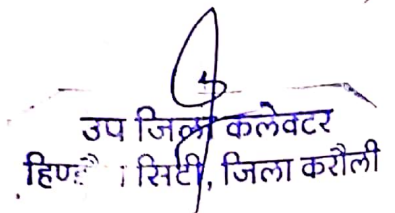 उप जिला कलेक्टर
सिटी, जिला करौली